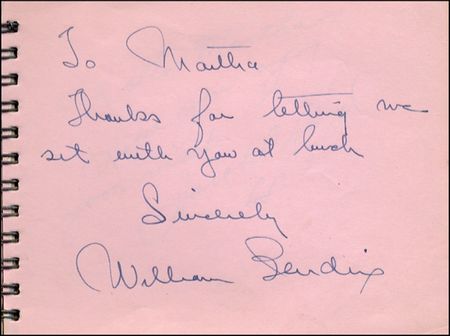 To Martha
Thanks for letting me
sit with you at lunch
Sincerely
William Bendix